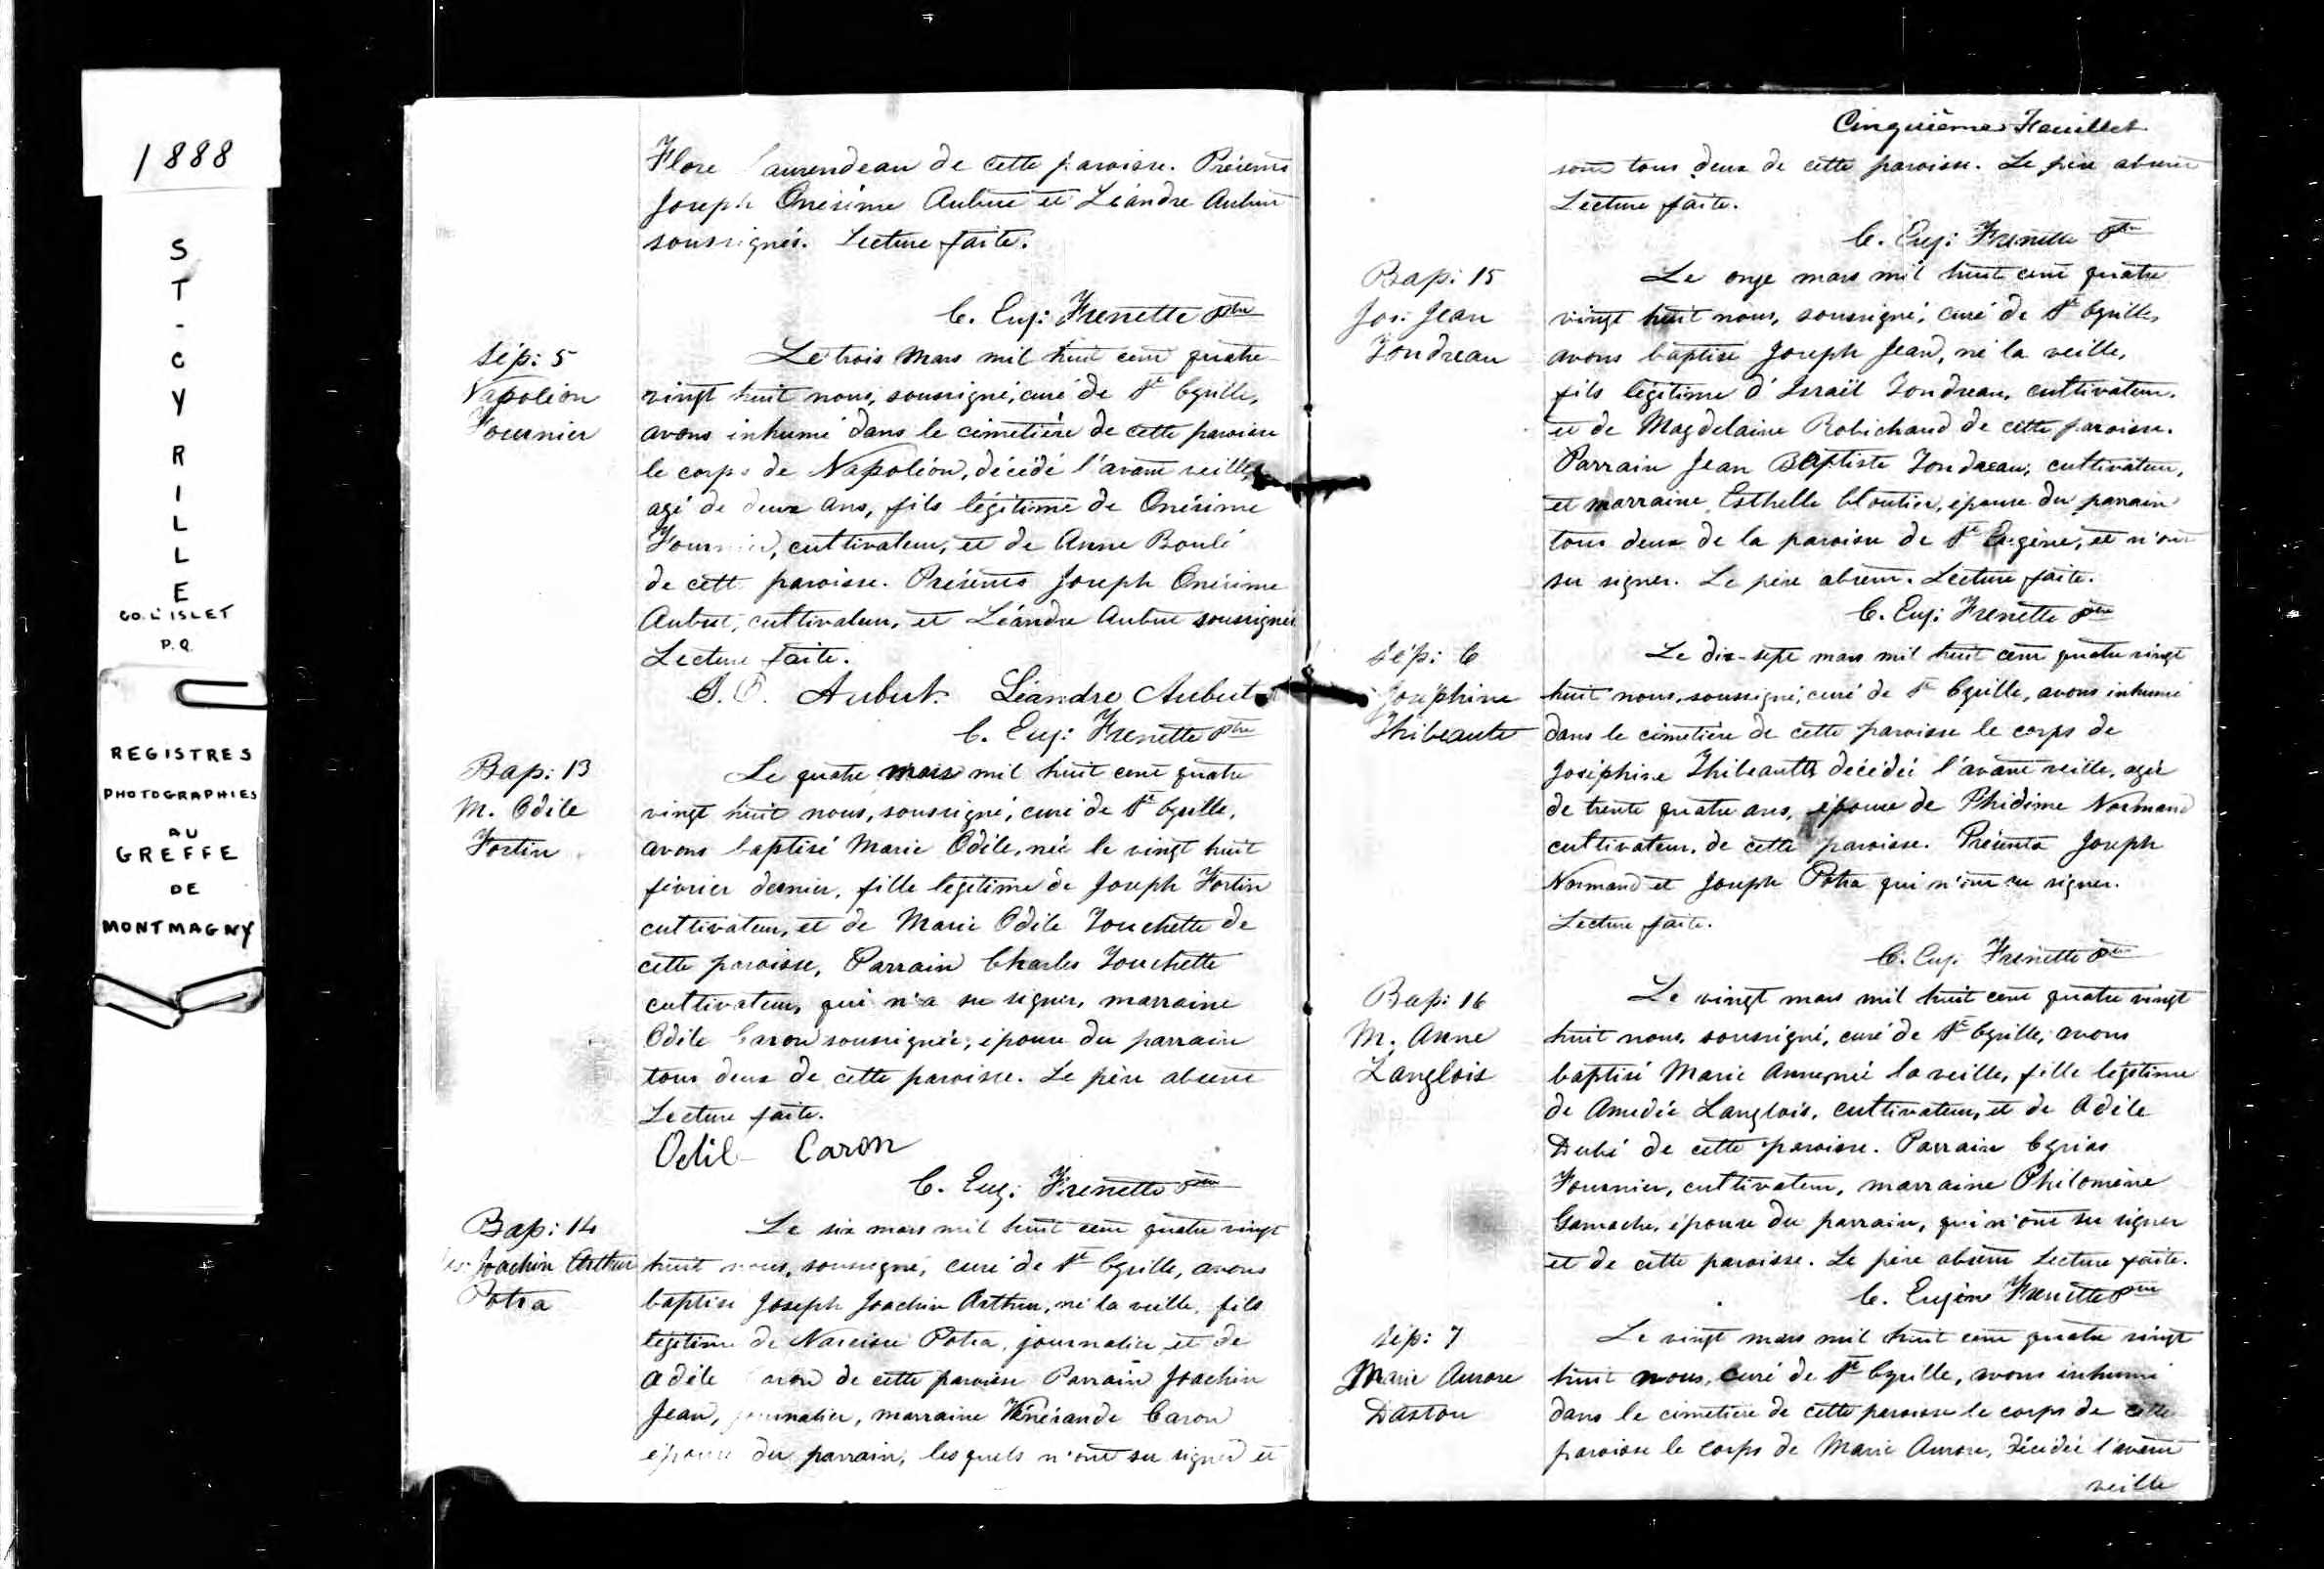 1888
S
T
-
C
Y
R
I
L
L
E
CO. L'ISLET
P.Q.
REGISTRES
PHOTOGRAPHIES
AU
GREFFE
DE
MONTMAGNY
Flore aurendeau de cette paroisse. Présents
Joseph Onésime Aubut et Léandre Aubut
soussignés. Lecture faite.
C. Eug: Frenette Ptre
Sép: 5
Napoléon
Fournier
Le trois Mars mil huit cent quatre-
vingt huit nous, soussigné, curé de St Cyrille,
avons inhumé dans le cimetière de cette paroisse
le corps de Napoléon, décédé l'avant veille,
agé de deux ans, fils légitime de Onésime
Fournier, cultivateur, et de Anne Boulé
de cett paroisse. Présents Joseph Onésime
Aubut, cultivateur, et Léandre Aubut soussignés
Lecture faite.
J. O. Aubut. Léandre Aubut
C. Eug: Frenette Ptre
Bap: 13
M. Odile
Fortin
Le quatre mars mil huit cent quatre
vingt huit nous, soussigné, curé de St Cyrille,
avons baptisé Marie Odile, née le vingt huit
février dernier, fille légitime de Joseph Fortin
cultivateur, et de Marie Odile Touchette de
cette paroisse, Parrain Charles Touchette
cultivateur, qui n'a su signer, marraine
Odile Caron soussignée, épouse du parrain
tous deux de cette paroisse. Le père absent
Lecture faite.
Odil Caron
C. Eug: Frenette Ptre
Bap: 14
Jos: Joachin Arthur
Potra
Le six mars mil huit cent quatre vingt
huit nous, soussigné, curé de St Cyrille, avons
baptisé Joseph Joachin Arthur, né la veille, fils
légitime de Narcisse Potra, journalier, et de
Adèle aron de cette paroisse Parrain Joachin
Jean, journalier, marraine Vénérande Caron
épouse du parrain, lesquels n'ont su signer et
Cinquième Feuillet
sont tous deux de cette paroisse. Le père absent
Lecture faite.
C. Eug: Frenette Ptre
Bap: 15
Jos: Jean
Tondreau
Le onze mars mil huit cent quatre
vingt huit nous, soussigné, curé de St Cyrille,
avons baptisé Joseph Jean, né la veille,
fils légitime d'Israël Tondreau, cultivateur,
et de Magdelaine Robichaud de cette paroisse.
Parrain Jean Baptiste Tondreau, cultivateur,
et marraine Esthelle Cloutier, épouse du parrain
tous deux de la paroisse de St Eugène, et n'ont
su signer. Le père absent. Lecture faite.
C. Eug: Frenette Ptre
Sép: 6
Joséphine
Thibeault
Le dix-sept mars mil huit cent quatre vingt
huit nous, soussigné, curé de St Cyrille, avons inhumé
dans le cimetière de cette paroisse le corps de
Joséphine Thibeault, décédée l'avant veille, agée
de trente quatre ans, épouse de Phidime Normand
cultivateur, de cette paroisse. Présents Joseph
Normand et Joseph Potra qui n'ont su signer.
Lecture faite.
C. Eug. Frenette Ptre
Bap: 16
M. Anne
Langlois
Le vingt mars mil huit cent quatre vingt
huit nous, soussigné, curé de St Cyrille, avons
baptisé Marie Anne, née la veille, fille légitime
de Amedée Langlois, cultivateur, et de Adèle
Dubé de cette paroisse. Parrain Cyrias
Fournier, cultivateur, marraine Philomène
Gamache, épouse du parrain, qui n'ont su signer
et de cette paroisse. Le père absent Lecture faite.
C. Eugène Frenette Ptre
Sép: 7
Marie Aurore
Daston
Le vingt mars mil huit cent quatre vingt
huit nous, curé de St Cyrille, avons inhumé
dans le cimetière de cette paroisse le corps de cette
paroisse le corps de Marie Aurore, décédée l'avant
veille